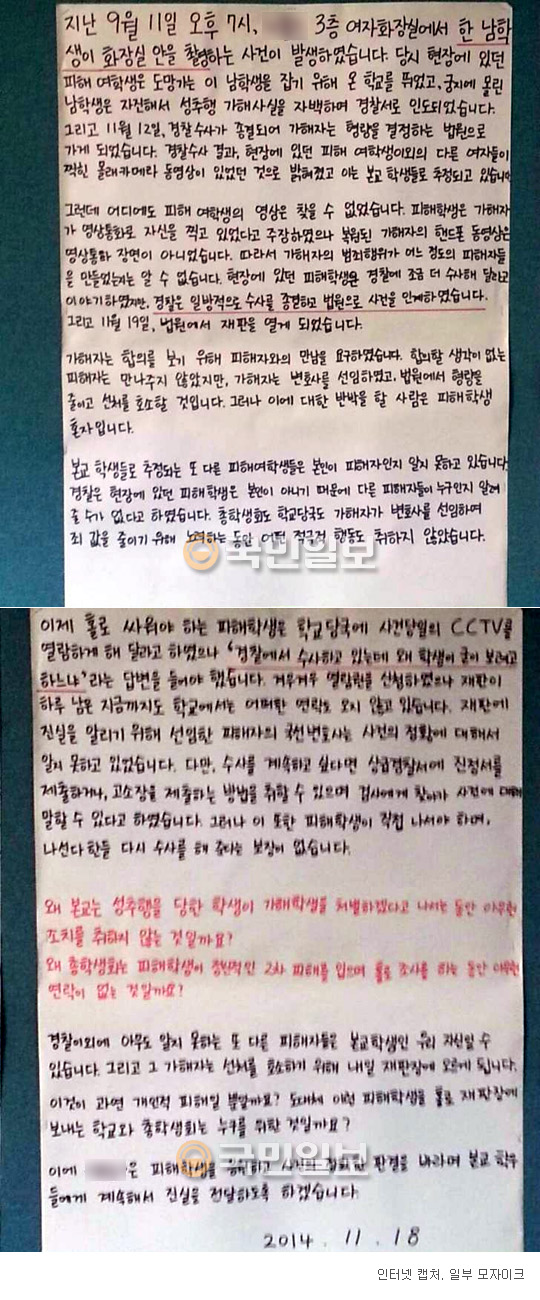 지난 9월 11일 오후 7시, 3층 여자화장실에서 한 남학
생이 화장실 안을 촬영하는 사건이 발생하였습니다. 당시 현장에 있던
피해 여학생은 도망가는 이 남학생을 잡기 위해 온 학교를 뛰었고, 궁지에 몰린
남학생은 자진해서 성추행 가해사실을 자백하며 경찰서로 인도되었습니다.
그리고 11월 12일, 경찰수사가 종결되어 가해자는 형량을 결정하는 법원으로
가게 되었습니다. 경찰수사 결과, 현장에 있던 피해 여학생이외의 다른 여자들이
찍힌 몰래카메라 동영상이 있었던 것으로 밝혀졌고 이는 본교 학생들로 추정되고 있습니다
그런데 어디에도 피해 여학생의 영상은 찾을 수 없었습니다. 피해학생은 가해자
가 영상통화로 자신을 찍고 있었다고 주장하였으나 복원된 가해자의 핸드폰 동영상은
영상통화 장면이 아니었습니다. 따라서 가해자의 범죄행위가 어느 정도의 피해자들
을 만들었는지는 알 수 없습니다. 현장에 있던 피해학생은 경찰에 조금 더 수사해 달라고
이야기하였지만, 경찰은 일방적으로 수사를 종결하고 법원으로 사건을 인계하였습니다.
그리고 11월 19일, 법원에서 재판을 열게 되었습니다.
가해자는 합의를 보기 위해 피해자와의 만남을 요구하였습니다. 합의할 생각이 없는
피해자는 만나주지 않았지만, 가해자는 변호사를 선임하였고, 법원에서 형량을
줄이고 선처를 호소할 것입니다. 그러나 이에 대한 반박을 할 사람은 피해학생
혼자입니다.
본교 학생들로 추정되는 또 다른 피해여학생들은 본인이 피해자인지 알지 못하고 있습니다.
경찰은 현장에 있던 피해학생은 본인이 아니기 때문에 다른 피해자들이 누구인지 알려
줄 수가 없다고 하였습니다. 총학생회도 학교당국도 가해자가 변호사를 선임하여
죄 값을 줄이기 위해 노력하는 동안 어떤 적극적 행동도 취하지 않았습니다.
국민일보
이제 홀로 싸워야 하는 피해학생은 학교당국에 사건당일의 CCTV를
열람하게 해 달라고 하였으나 '경찰에서 수사하고 있는데 왜 학생이 굳이 보려고
하느냐' 라는 답변을 들어야 했습니다. 겨우겨우 열람원을 신청하였으나 재판이
하루 남은 지금까지도 학교에서는 어떠한 연락도 오지 않고 있습니다. 재판에
진실을 알리기 위해 선임한 피해자의 국선변호사는 사건의 정황에 대해서
알지 못하고 있었습니다. 다만, 수사를 계속하고 싶다면 상급경찰서에 진정서를
제출하거나, 고소장을 제출하는 방법을 취할 수 있으며 검사에게 찾아가 사건에 대해
말할 수 있다고 하였습니다. 그러나 이 또한 피해학생이 직접 나서야 하며,
나선다 한들 다시 수사를 해 준다는 보장이 없습니다.
왜 본교는 성추행을 당한 학생이 가해학생을 처벌하겠다고 나서는 동안 아무런
조치를 취하지 않는 것일까요?
왜 총학생회는 피해학생이 정신적인 2차 피해를 입으며 홀로 조사를 하는 동안 아무런
연락이 없는 것일까요?
경찰이외에 아무도 알지 못하는 또 다른 피해자들은 본교학생인 우리 자신일 수
있습니다. 그리고 그 가해자는 선처를 호소하기 위해 내일 재판장에 오르게 됩니다.
이것이 과연 개인적 피해일 뿐일까요? 도대체 이런 피해학생을 홀로 재판장에
보내는 학교와 총학생회는 누구를 위한 것일까요?
국민일보
이에 은 피해학생을 응원하고 판결을 바라며 본교 학우
들에게 계속해서 진실을 전달하도록 하겠습니다.
2014. 11. 18
인터넷 캡처, 일부 모자이크